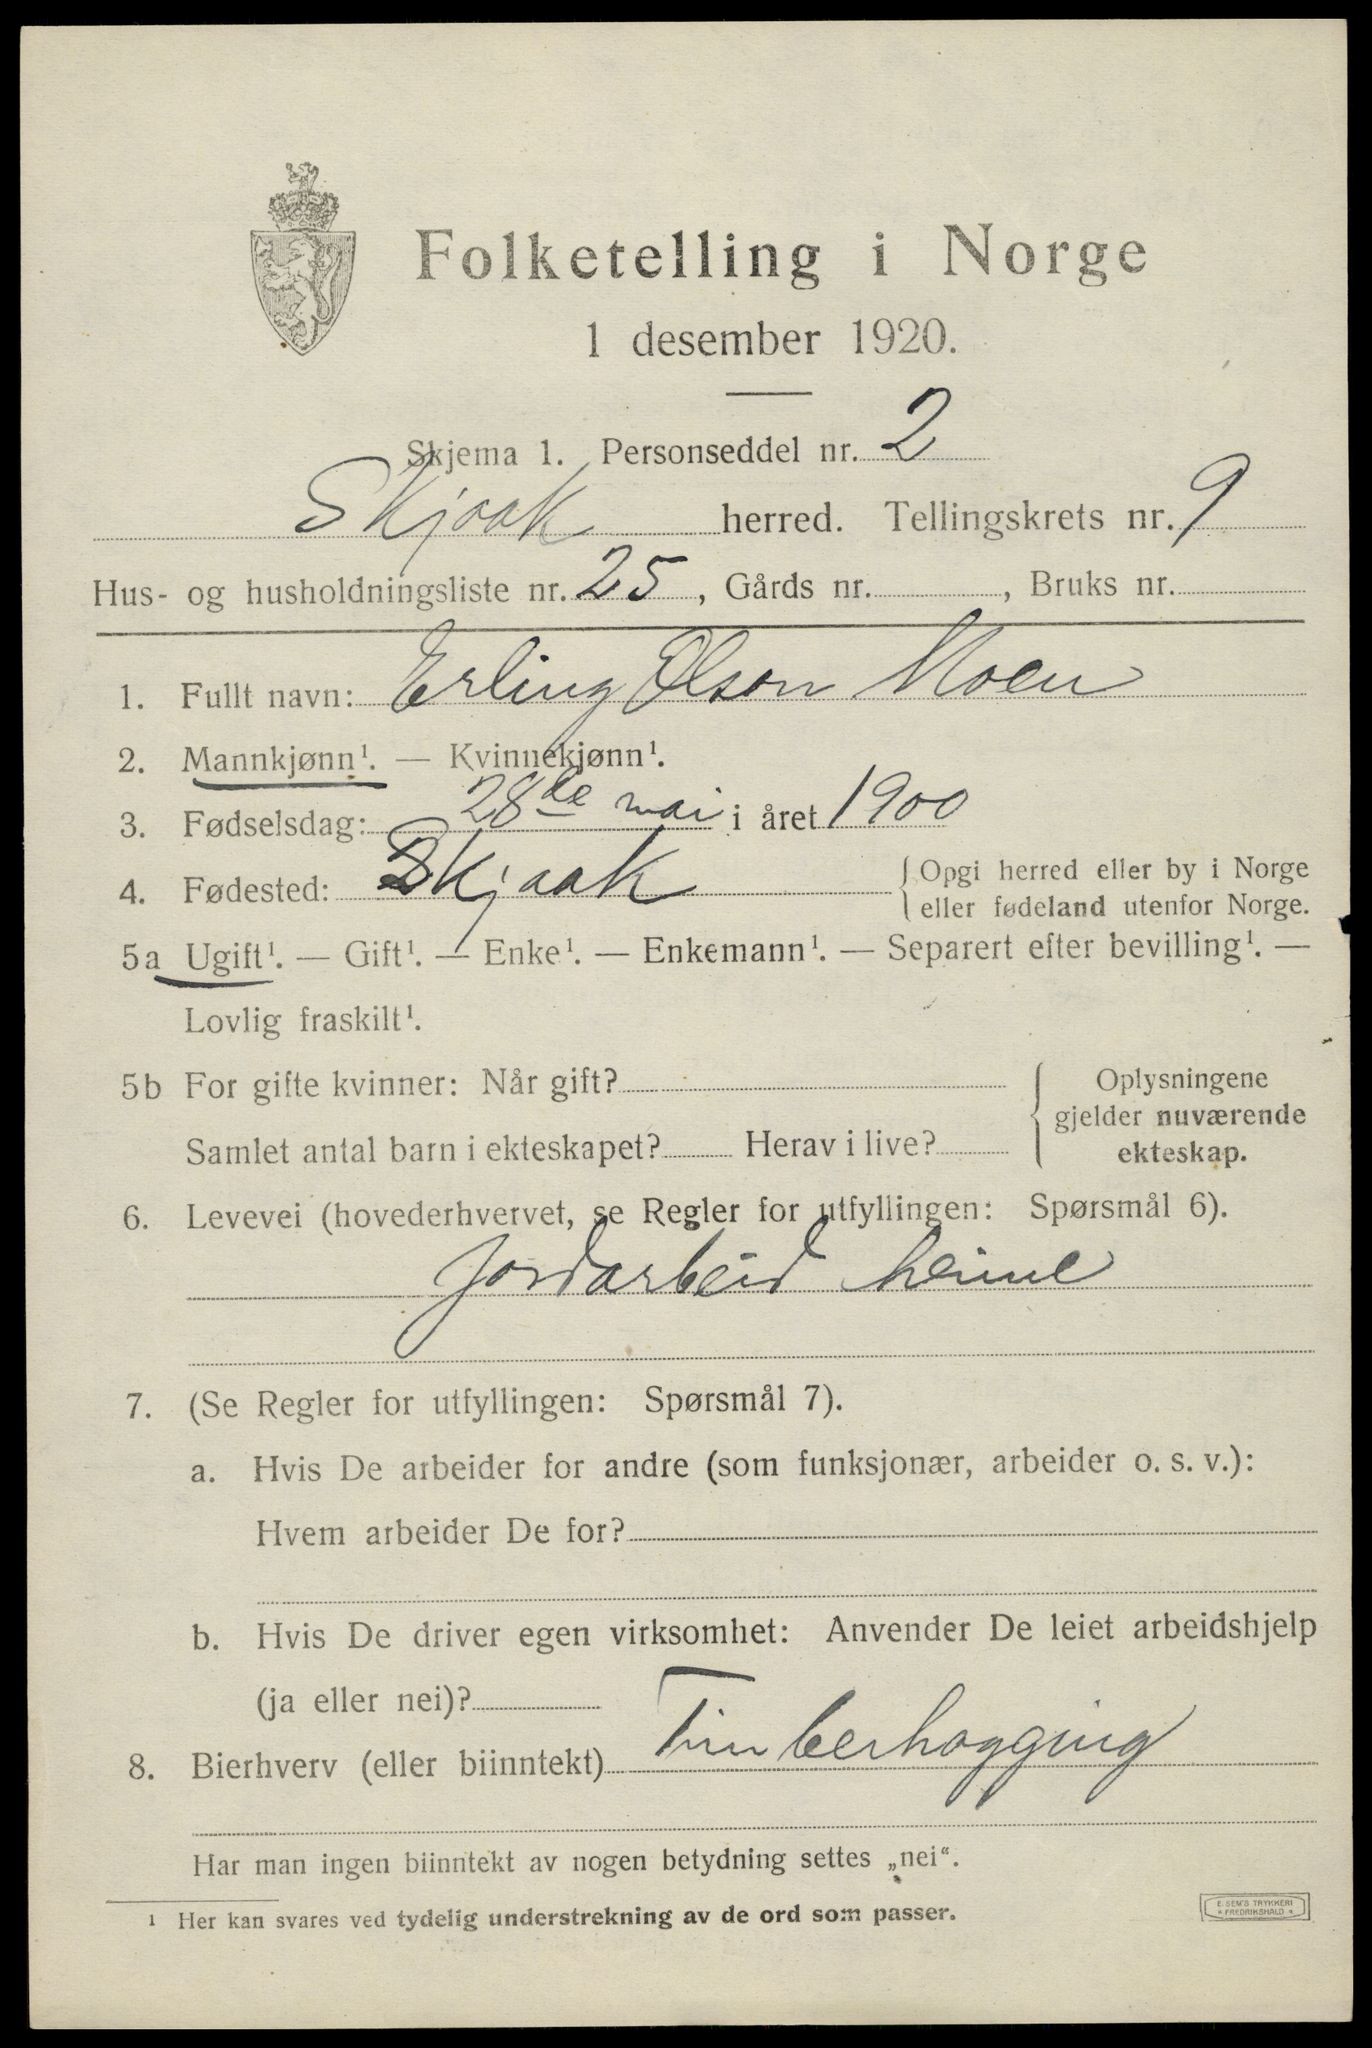 Folketelling i Norge
1 desember 1920.
Skjema 1. Personseddel nr. 2
Skjaak herred. Tellingskrets nr. 9
Hus- og husholdningsliste nr. 25, Gårds nr. , Bruks nr.
1. Fullt navn: Erling Olson Moen
2. Mannkjønn¹. — Kvinnekjønn¹.
3. Fødselsdag: 28de mai i året 1900
4. Fødested: Skjaak {Opgi herred eller by i Norge
eller fødeland utenfor Norge.
5a Ugift¹. — Gift¹. — Enke¹. — Enkemann¹. — Separert efter bevilling¹. —
Lovlig fraskilt¹.
5b For gifte kvinner: Når gift?
Samlet antal barn i ekteskapet? Herav i live?
{Oplysningene
gjelder nuværende
ekteskap.
6. Levevei (hovederhvervet, se Regler for utfyllingen: Spørsmål 6).
Jordarbeid heime
7. (Se Regler for utfyllingen: Spørsmål 7).
a. Hvis De arbeider for andre (som funksjonær, arbeider o. s. v.):
Hvem arbeider De for?
b. Hvis De driver egen virksomhet: Anvender De leiet arbeidshjelp
(ja eller nei)?
8. Bierhverv (eller biinntekt) Timberhogging
Har man ingen biinntekt av nogen betydning settes „nei“.
¹ Her kan svares ved tydelig understrekning av de ord som passer.
E. SEM'S TRYKKERI
* FREDRIKSHALD *